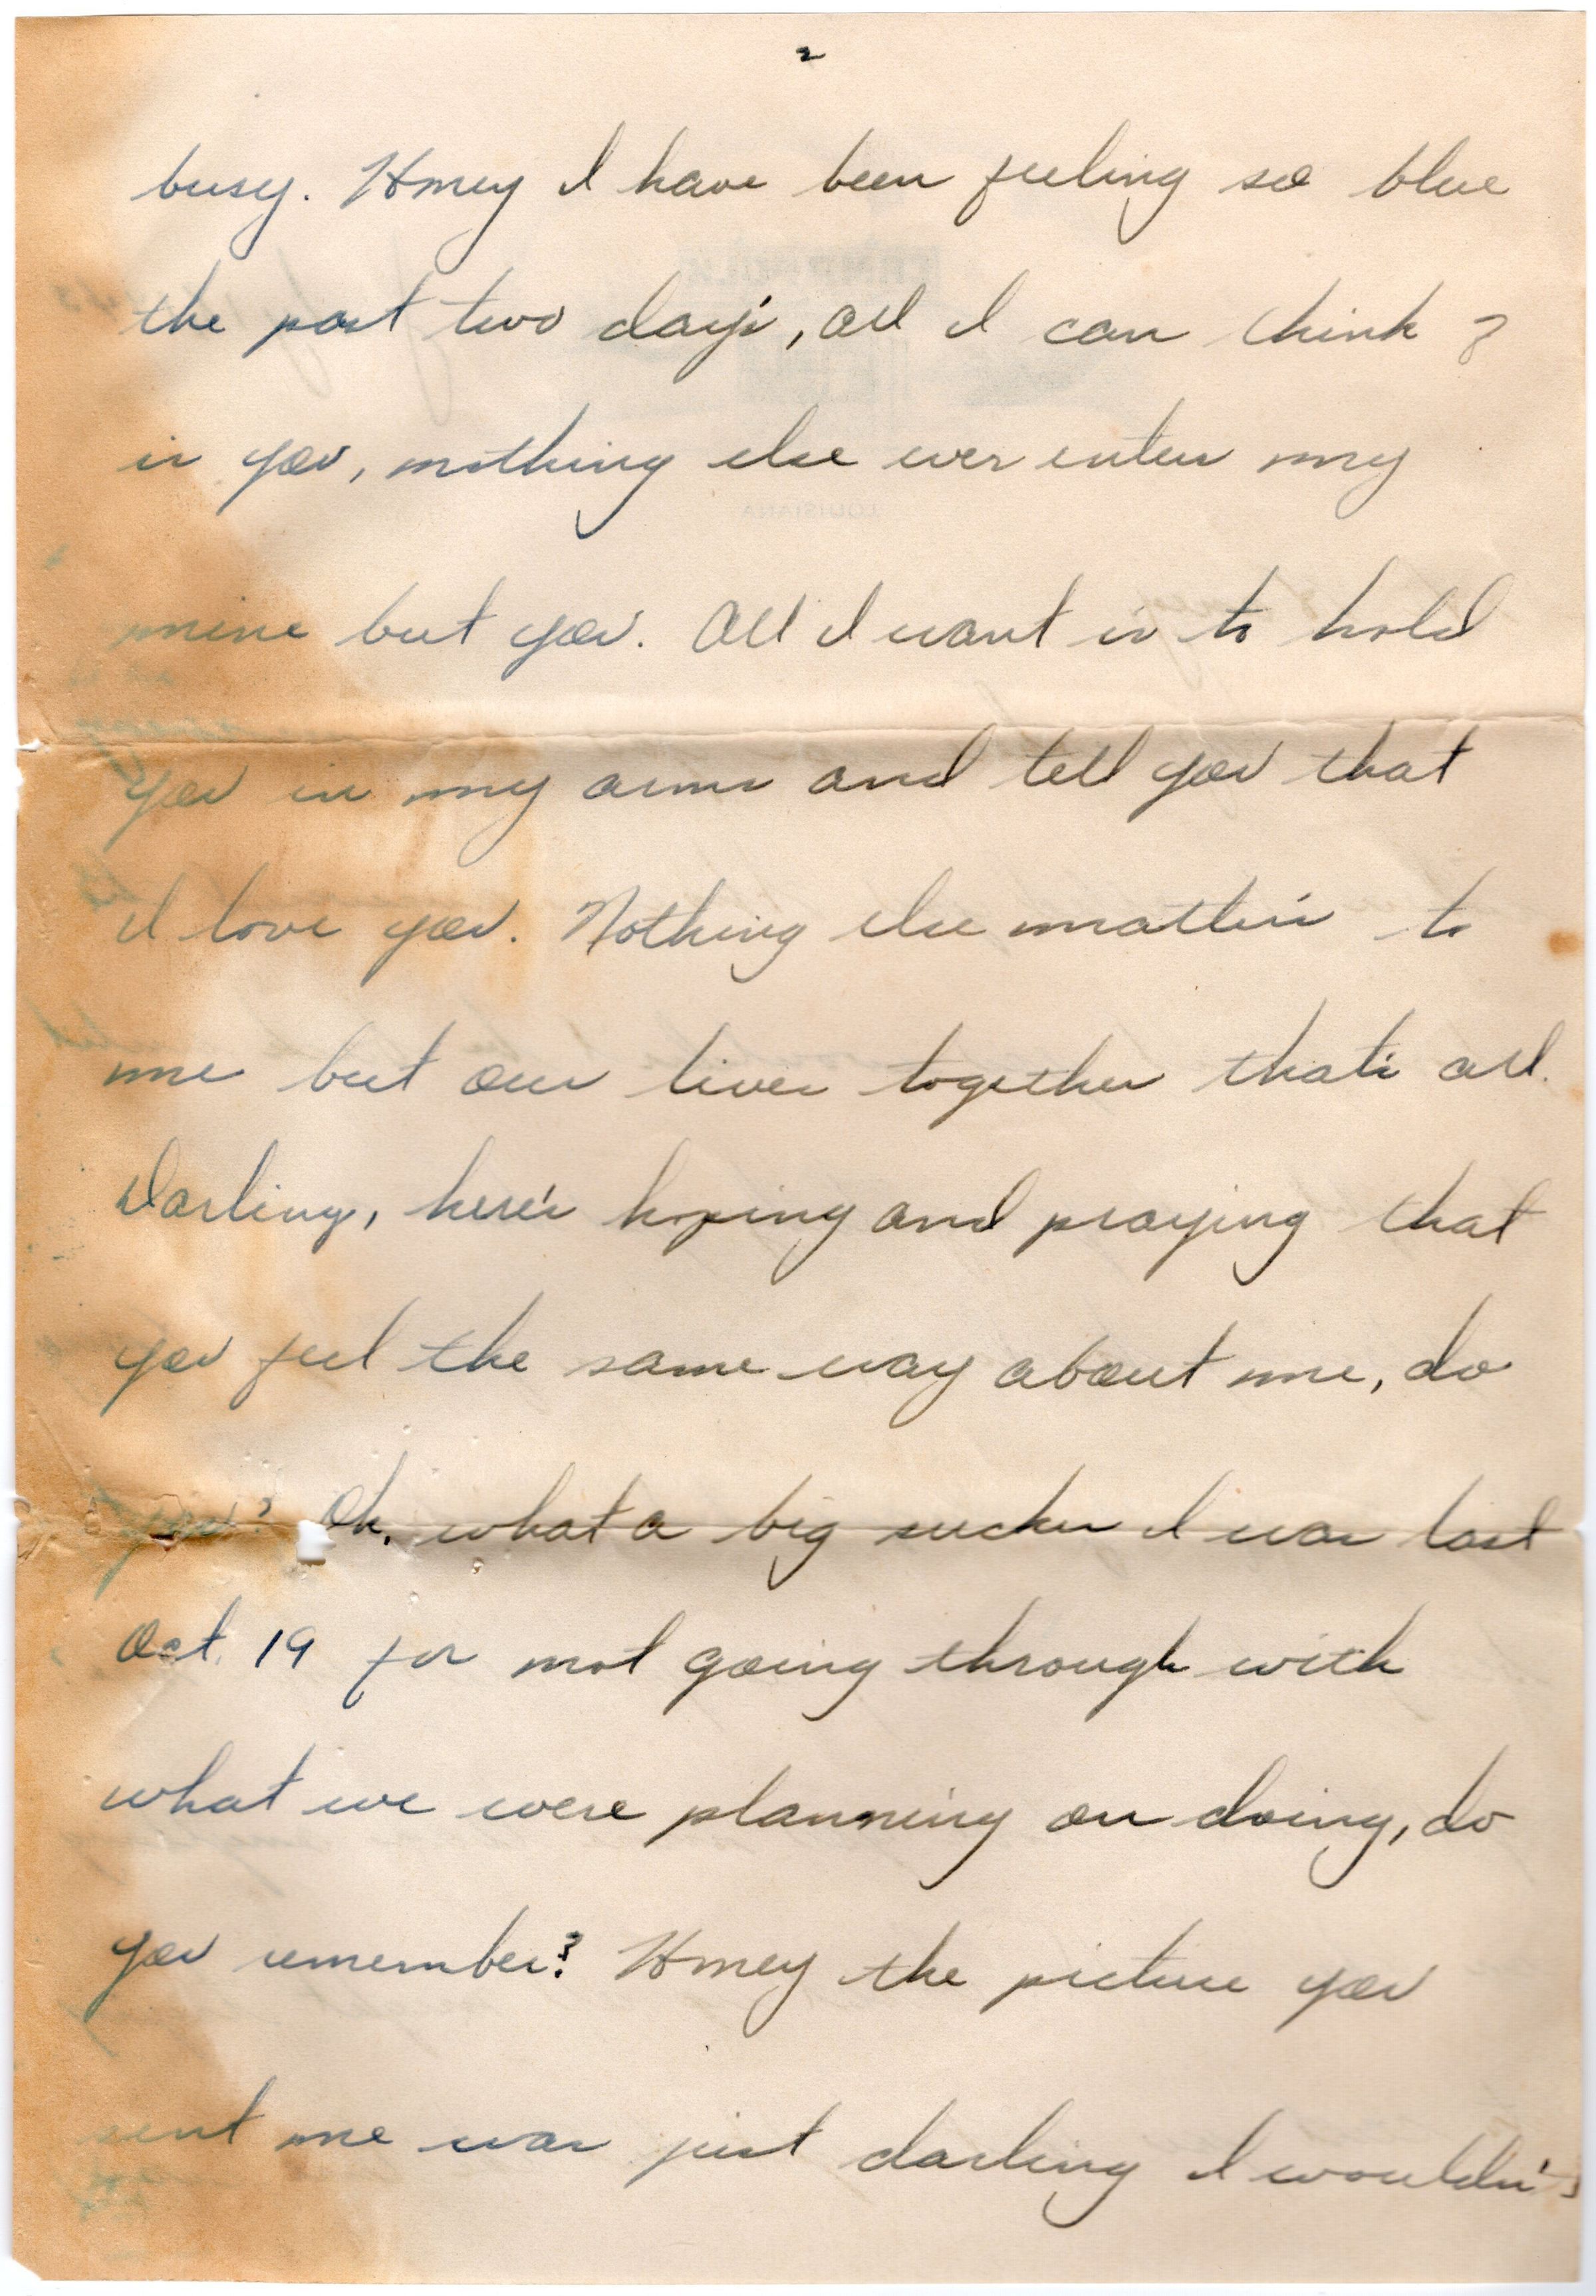 2
busy. Honey I have been feeling so blue
the past two day's, all I can think of
is you, nothing else ever enters my
mine but you. All I want is to hold
you in my arms and tell you that
I love you. Nothing else matter's to
me but our lives together that's all.
Darling, here's hoping and praying that
you feel the same way about me, do
you? Oh, what a big sucker I was last
Oct. 19 for not going through with
what we were planning on doing, do
you remember? Honey the picture you
sent me was just darling I wouldn't
LOUISIANA